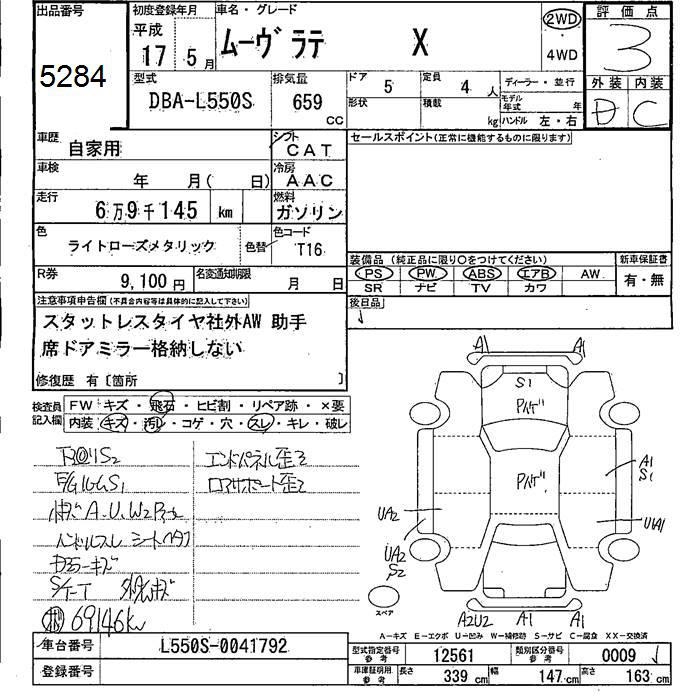 出品番号
5284
初度登録年月
平成
17 5月
車名・グレード
ムーヴ ラテ X
2WD
・
4WD
評価点
3
外装 内装
D C
型式
DBA-L550S
排気量
659
CC
ドア
5
定員
4 人
ディーラー・並行
形状
積載
kg
モデル年式 年
ハンドル 左・右
車歴
自家用
シフト
CAT
車検
年 月( 日)
冷房
AAC
走行
6万9千145 km
燃料
ガソリン
色
ライトローズメタリック
色替
色コード
T16
R券
9,100 円
名変通知期限
月 日
セールスポイント(正常に機能するものに限ります)
装備品 (純正品に限り○をつけてください)
新車保証書
PS PW ABS エアB AW
SR ナビ TV カワ
有・無
後日品
注意事項申告欄(不具合内容等は具体的に記入して下さい)
スタットレスタイヤ社外AW 助手
席ドアミラー格納しない
修復歴 有〔箇所 〕
検査員
記入欄
FW キズ・飛石・ヒビ割・リペア跡・×要
内装 キズ・汚れ・コゲ・穴・スレ・キレ・破レ
エンドパネル歪ミ
ロアサポート歪ミ
ハンドルスレ シートヘタリ
69146km
A1 A1
S1
A1
S1
UA2
UA2
S2
UA1
スペア
A2U2 A1 A1
A-キズ E-エクボ U-凹み W-補修跡 S-サビ C-腐食 XX-交換済
車台番号
L550S-0041792
登録番号
型式指定番号
参考
12561
類別区分番号
参考
0009
車庫証明用
参考
長さ 339 cm 幅 147 cm 高さ 163 cm